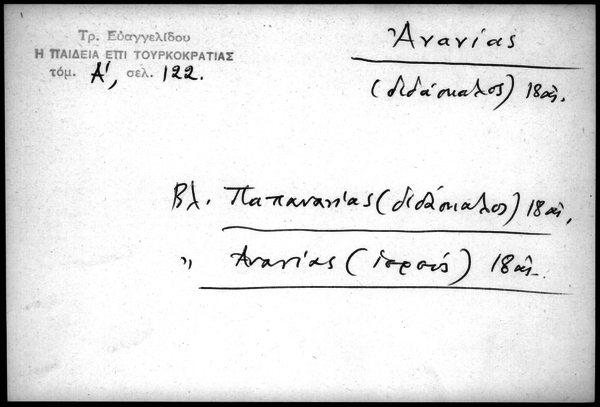 Τρ. Εὐαγγελίδου
Η ΠΑΙΔΕΙΑ ΕΠΙ ΤΟΥΡΚΟΚΡΑΤΙΑΣ
τόμ. Α', σελ. 122.
Ἀνανίας
(διδάσκαλος) 18 αἰ.
Βλ. Παπανανίας (διδάσκαλος) 18 αἰ.
" Ἀνανίας (ἱερεύς) 18 αἰ.